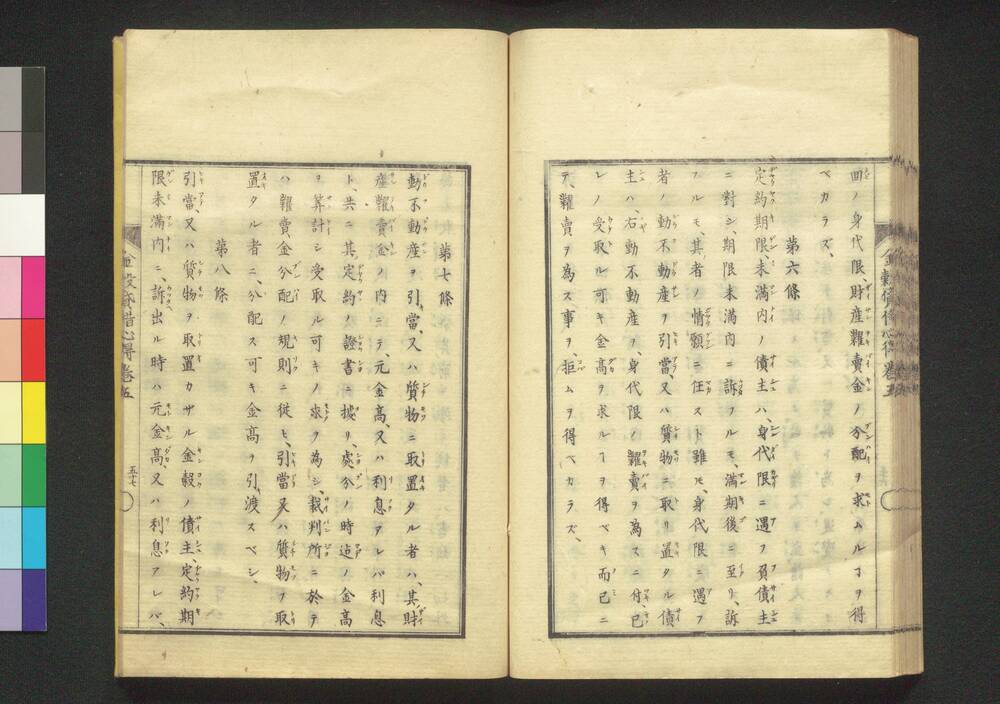 回ノ身代限財産糶賣金ノ分配ヲ求ムルヿヲ得
ベカラズ、
第六條
定約期限、未滿内ノ債主ハ、身代限ニ遇フ負債主
ニ對シ、期限未滿内ニ訴フルモ、滿期後ニ至リ、訴
フルモ、其者ノ情願ニ任スト雖𪜈、身代限ニ遇フ
者ノ動不動産ヲ引當、又ハ質物ニ取リ置タル債
主ハ、右動不動産ヲ、身代限ノ糶賣ヲ為スニ付、已
レノ受取ル可キ金高ヲ求ルヿヲ得ベキ而已ニ
テ、糶賣ヲ為ス事ヲ、拒ムヲ得ベカラズ、
第七條
動不動産ヲ引當、又ハ質物ニ取置タル者ハ、其財
産糶賣金ノ内ニテ、元金高、又ハ利息アレバ利息
ト、共ニ其定約ノ證書ニ據リ、處分ノ時迠ノ金高
ヲ算計シ受取ル可キノ求ヲ為シ、裁判所ニ於テ
ハ糶賣金分配ノ規則ニ従ヒ、引當又ハ質物ヲ取
置タル者ニ、分配ス可キ金高ヲ引渡スベシ、
第八條
引當、又ハ質物ヲ取置カサル金穀ノ債主、定約期
限未滿内ニ、訴出ル時ハ元金高、又ハ利息アレバ、
金穀貸借心得卷五
五十七